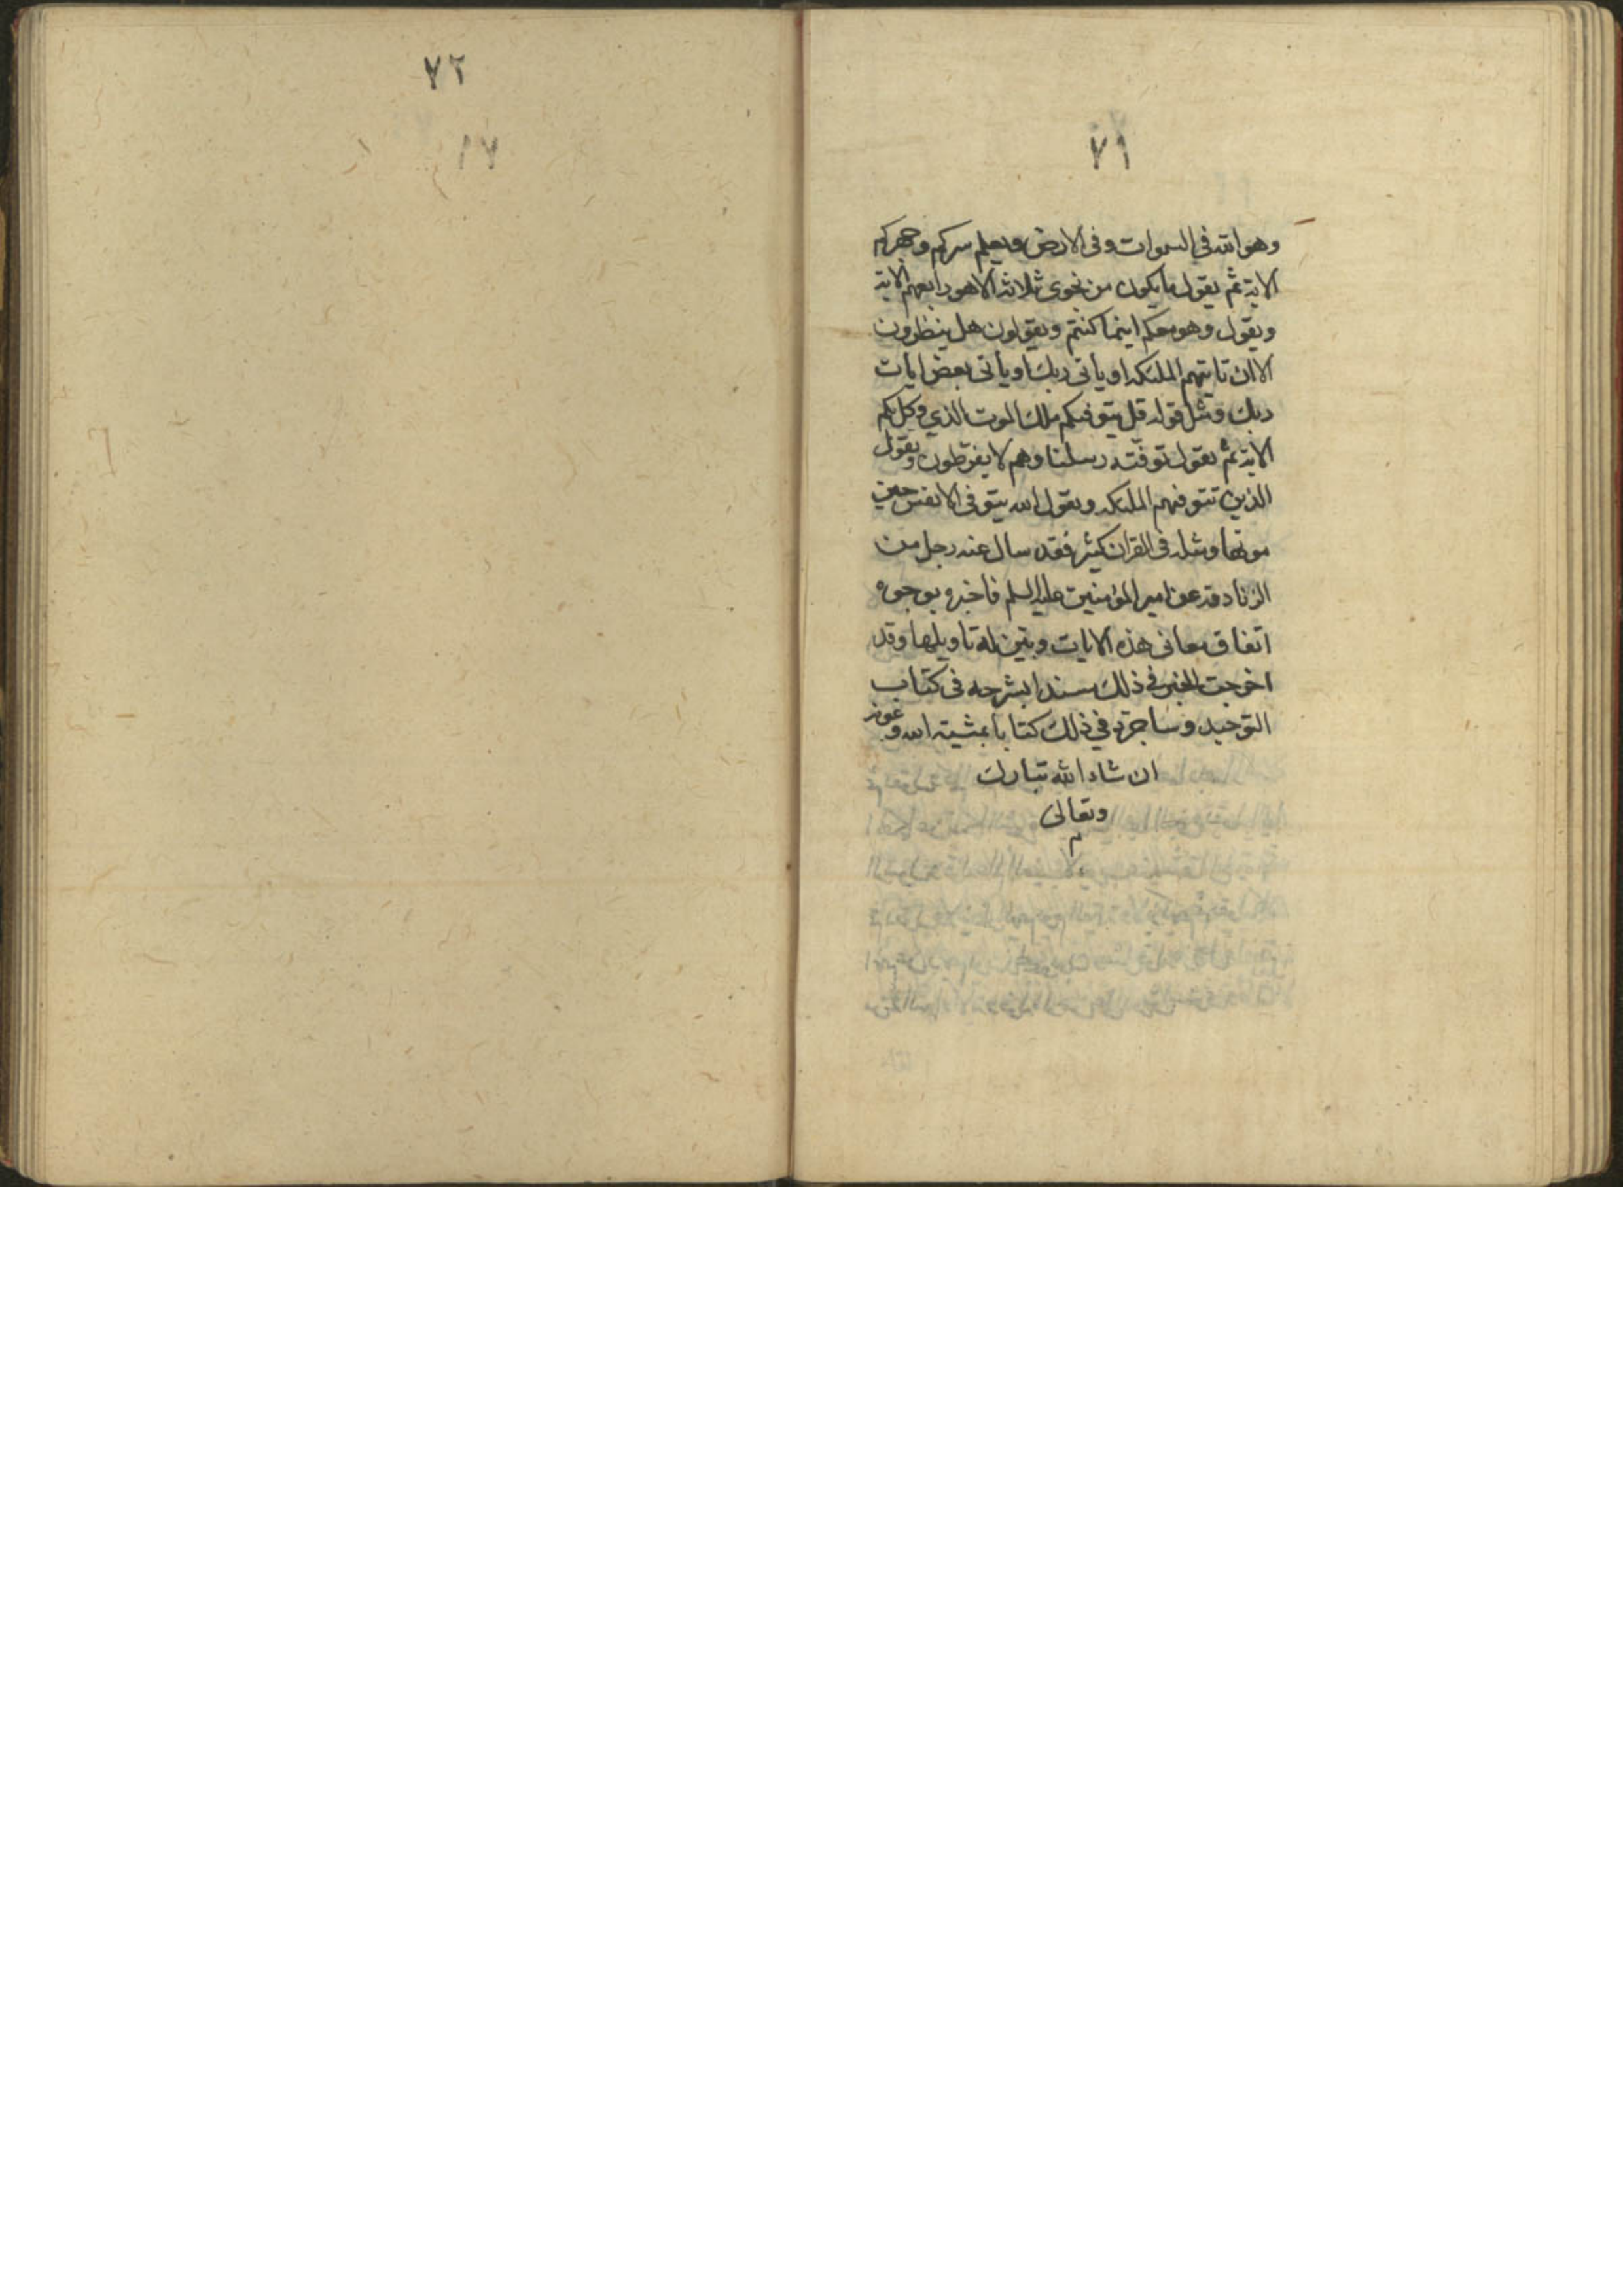 ٧١
وهو الله في السموات وفي الارض ويعلم سركم وجهركم
الاية ثم يقول ما يكون من نجوى ثلاثة الا هو رابعهم الاية
ويقول وهو معكم اينما كنتم ويقولون هل ينظرون
الا ان تاتيهم الملئكة او ياتى ربك او ياتى بعض ايات
ربك ومثل قوله قل يتوفيكم ملك الموت الذي وكل بكم
الاية ثم يقول توفته رسلنا وهم لا يفرطون ويقول
الذين تتوفيهم الملئكة ويقول الله يتوفى الانفس حين
موتها ومثله فى القران كثير فقد سال عنه رجل من
الزنادقة عن امير المؤمنين عليه السلم فاخبره بوجوه
اتفاق معانى هذه الايات وبين له تاويلها وقد
اخرجت الخبر في ذلك مسندا بشرحه فى كتاب
التوحيد وساجرد في ذلك كتابا بمشية الله وعونه
ان شاء الله تبارك
وتعالى
م
٧٢